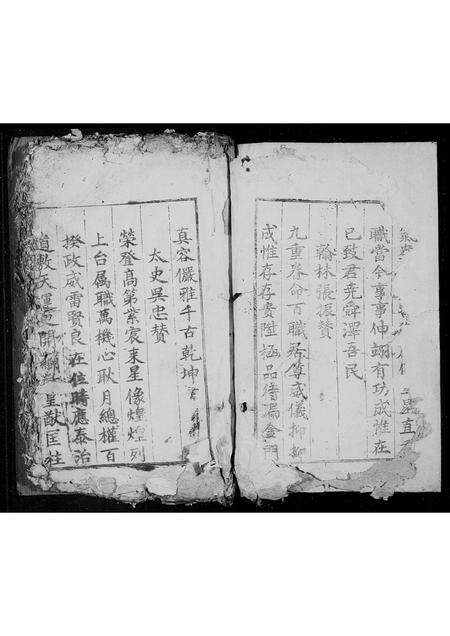 職當今享事伸翊有功成惟在
已致君堯舜澤吾民
翰林張振贊
九重券命百職 尊威儀抑抑
成惟存存貴陞極品待漏金門
真容儼雅千古乾坤
太史吳忠贊
榮登高第紫宸束星像煌煌列
上台属職萬機心耿月總權百
揆政威雷賢良在位時應泰治
道敷天運 開 皇猷匡社